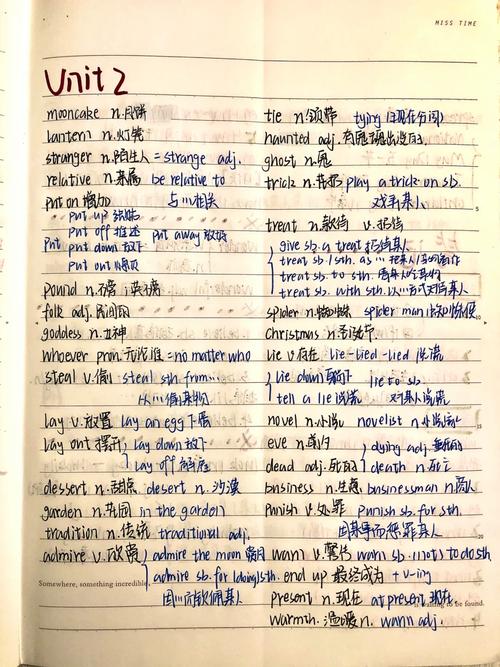 MISS TIME
Unit 2
mooncake n.月饼
lantern n.灯笼
stranger n.陌生人 = strange adj.
relative n.亲属 be relative to
put on 增加 与…相关
put up 张贴
put off 推迟 put away 放好
put put down 放下
put out 熄灭
pound n.磅;英镑
folk adj.民间的
goddess n.女神
whoever pron.无论谁 = no matter who
steal v.偷 steal sth. from...
从…偷某物
lay v.放置 lay an egg 下蛋
lay out 摆开 lay down 放下
lay off 解雇
dessert n.甜点 desert n.沙漠
garden n.花园 in the garden
tradition n.传统 traditional adj.
admire v.欣赏 admire the moon 赏月
admire sb. for (doing) sth.
因…而钦佩某人
Somewhere, something incredible
tie n.领带 tying (现在分词)
haunted adj.有鬼魂出没的
ghost n.鬼
trick n.花招 play a trick on sb.
戏弄某人
treat n.款待 v.招待
give sb. a treat 招待某人
treat sb / sth. as …
treat sb. to sth.
treat sb. with sth. 以…方式对待某人
spider n.蜘蛛 spider man 蜘蛛侠
Christmas n.圣诞节
lie v.存在 lie-lied-lied 说谎
lie down 躺下 lie to sb.
tell a lie 说谎 对某人说谎
novel n.小说 novelist n.小说家
eve n.前夕 dying adj.垂死的
dead adj.死的 death n.死亡
business n.生意 businessman n.商人
punish v.处罚 punish sb. for sth.
因某事而惩罚某人
warn v.警告 warn sb. (not) to do sth.
end up 最终成为 + v-ing
present n.现在 at present 现在
to be found.
warmth. 温暖 n. warm adj.